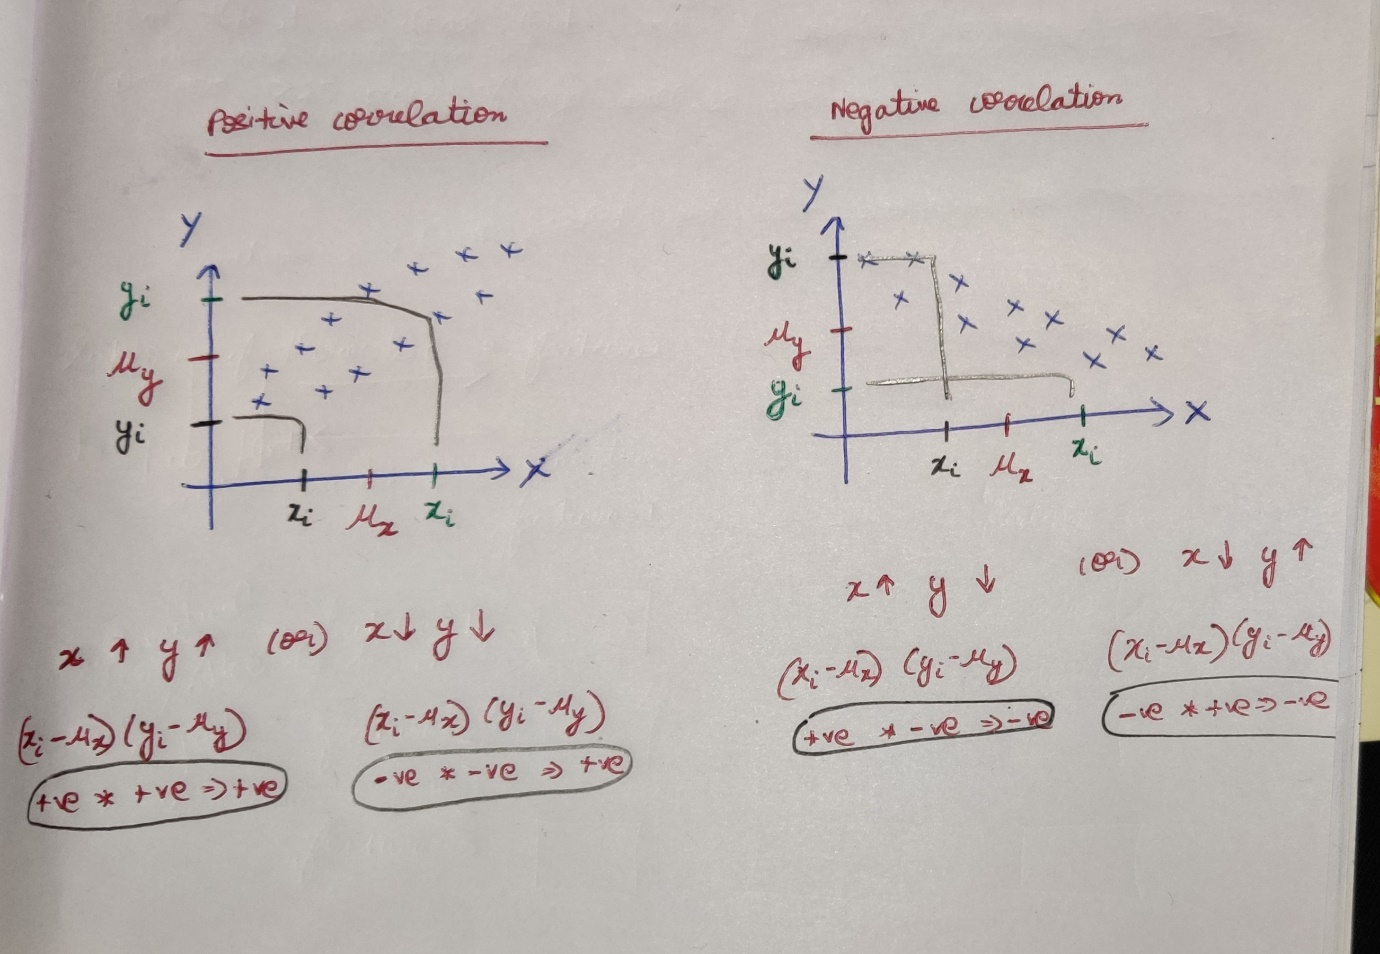 Positive correlation
Y
yi
μy
yi
xi μx xi
X
x ↑ y ↑ (or) x↓ y ↓
(xi-μx)(yi-μy) (xi-μx) (yi-μy)
+ve * +ve => +ve -ve * -ve => +ve
Negative correlation
Y
yi
μy
yi
xi μx xi
X
x↑ y ↓ (or) x↓ y↑
(xi-μx) (yi-μy) (xi-μx)(yi-μy)
+ve * -ve => -ve -ve * +ve => -ve